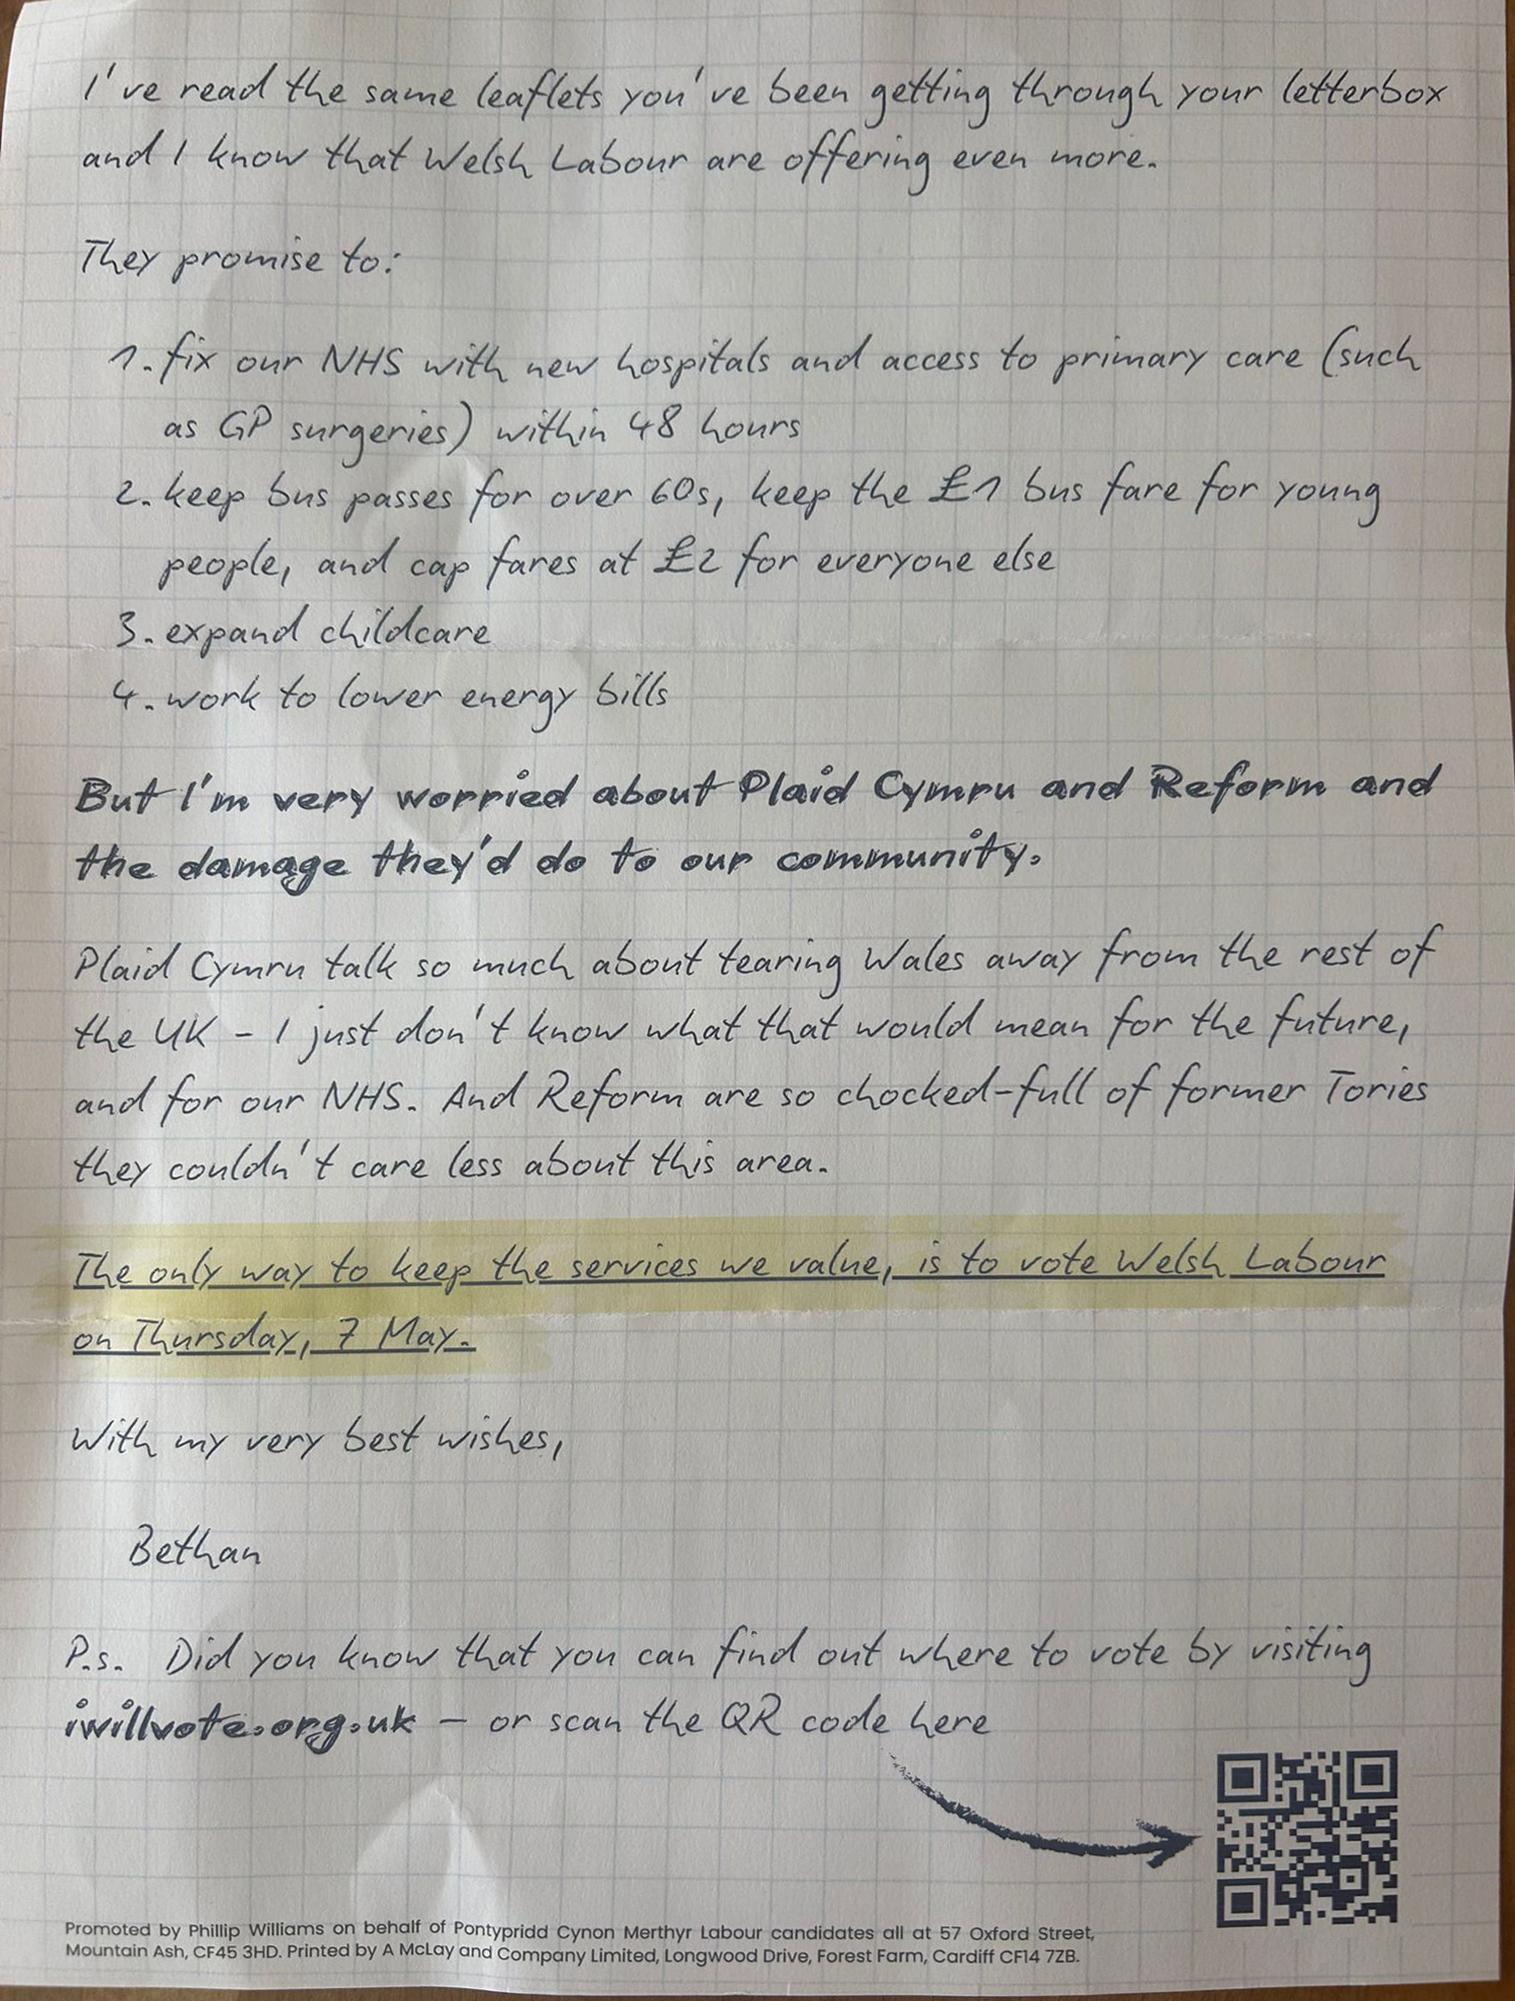 I've read the same leaflets you've been getting through your letterbox
and I know that Welsh Labour are offering even more.
They promise to:
1. fix our NHS with new hospitals and access to primary care (such
as GP surgeries) within 48 hours
2. keep bus passes for over 60s, keep the £1 bus fare for young
people, and cap fares at £2 for everyone else
3. expand childcare
4. work to lower energy bills
But I'm very worried about Plaid Cymru and Reform and
the damage they'd do to our community.
Plaid Cymru talk so much about tearing Wales away from the rest of
the UK – I just don't know what that would mean for the future,
and for our NHS. And Reform are so chocked-full of former Tories
they couldn't care less about this area.
The only way to keep the services we value, is to vote Welsh Labour
on Thursday, 7 May.
With my very best wishes,
Bethan
P.s. Did you know that you can find out where to vote by visiting
iwillvote.org.uk – or scan the QR code here
Promoted by Phillip Williams on behalf of Pontypridd Cynon Merthyr Labour candidates all at 57 Oxford Street,
Mountain Ash, CF45 3HD. Printed by A McLay and Company Limited, Longwood Drive, Forest Farm, Cardiff CF14 7ZB.